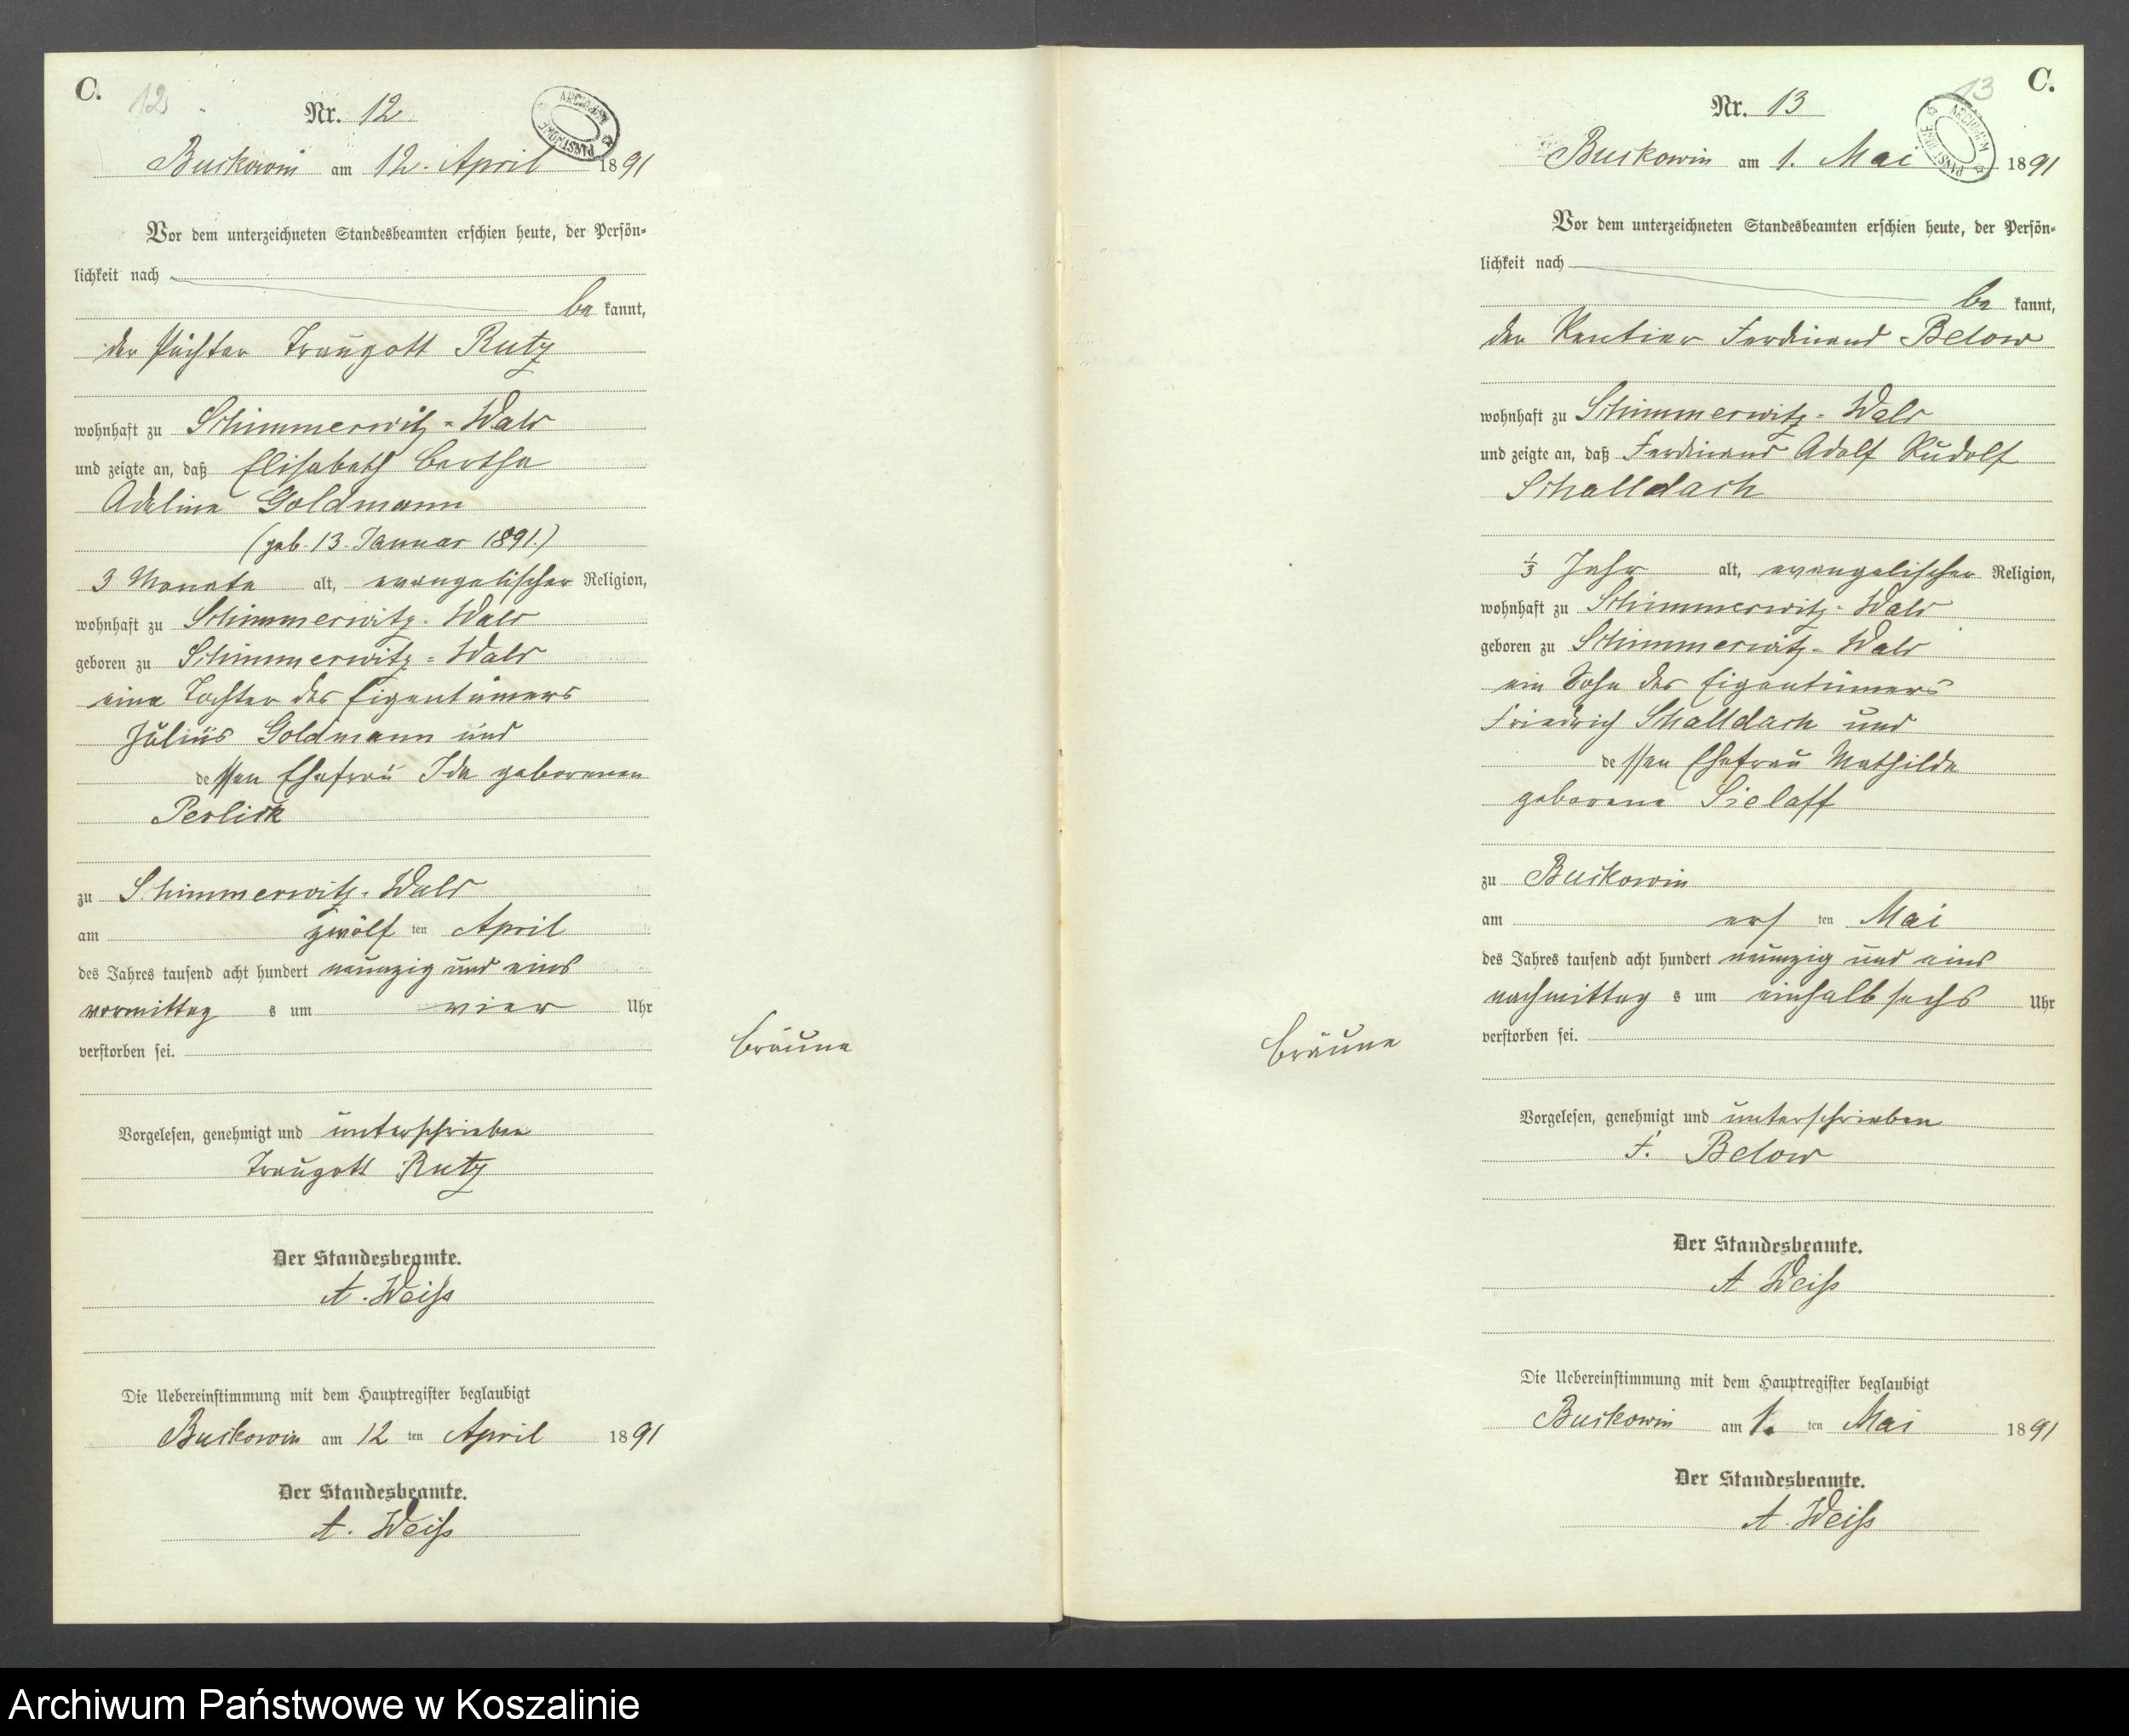 C.
12
Nr. 12
ARCHIWUM PAŃSTWOWE
Buckowin am 12. April 1891
Vor dem unterzeichneten Standesbeamten erschien heute, der Persön-
lichkeit nach
be kannt,
der Pächter Traugott Rutz
wohnhaft zu Schimmerwitz-Wald
und zeigte an, daß Elisabeth Bertha
Adeline Goldmann
(geb. 13. Januar 1891.)
3 Monate alt, evangelischer Religion,
wohnhaft zu Schimmerwitz-Wald
geboren zu Schimmerwitz-Wald
eine Tochter des Eigentümers
Julius Goldmann und
dessen Ehefrau Ida geborenen
Perlick
zu Schimmerwitz-Wald
am zwölf ten April
des Jahres tausend acht hundert neunzig und eins
vormittag s um vier Uhr
verstorben sei.
Bräune
Vorgelesen, genehmigt und unterschrieben
Traugott Rutz
Der Standesbeamte.
A. Weiß
Die Uebereinstimmung mit dem Hauptregister beglaubigt
Buckowin am 12 ten April 1891
Der Standesbeamte.
A. Weiß
13
C.
Nr. 13
ARCHIWUM PAŃSTWOWE
Buckowin am 1. Mai 1891
Vor dem unterzeichneten Standesbeamten erschien heute, der Persön-
lichkeit nach
be kannt,
der Rentier Ferdinand Below
wohnhaft zu Schimmerwitz-Wald
und zeigte an, daß Ferdinand Adolf Rudolf
Schalldach
1/3 Jahr alt, evangelischer Religion,
wohnhaft zu Schimmerwitz-Wald
geboren zu Schimmerwitz-Wald
ein Sohn des Eigentümers
Friedrich Schalldach und
dessen Ehefrau Mathilde
geborene Sielaff
zu Buckowin
am ers ten Mai
des Jahres tausend acht hundert neunzig und eins
nachmittag s um einhalb sechs Uhr
verstorben sei.
Bräune
Vorgelesen, genehmigt und unterschrieben
F. Below
Der Standesbeamte.
A Weiß
Die Uebereinstimmung mit dem Hauptregister beglaubigt
Buckowin am 1. ten Mai 1891
Der Standesbeamte.
A. Weiß
Archiwum Państwowe w Koszalinie